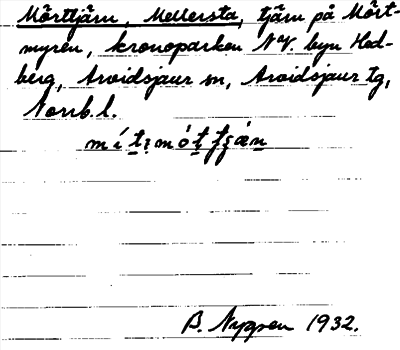 Mörttjärn, Mellersta, tjärn på Mört-
myren, kronoparken NV. byn Hed-
berg, Arvidsjaur sn, Arvidsjaur tg,
Norrb. l.
B. Nygren 1932.